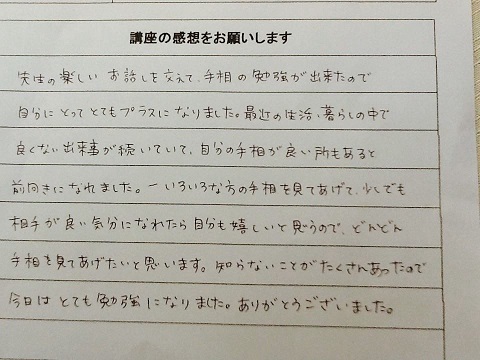 講座の感想をお願いします
先生の楽しい お話しを交えて、手相の勉強が出来たので
自分にとってとてもプラスになりました。最近の生活、暮らしの中で
良くない出来事が続いていて、自分の手相が良い所もあると
前向きになれました。ーいろいろな方の手相を見てあげて、少しでも
相手が良い気分になれたら自分も嬉しいと思うので、どんどん
手相を見てあげたいと思います。知らないことがたくさんあったので
今日は とても勉強になりました。ありがとうございました。